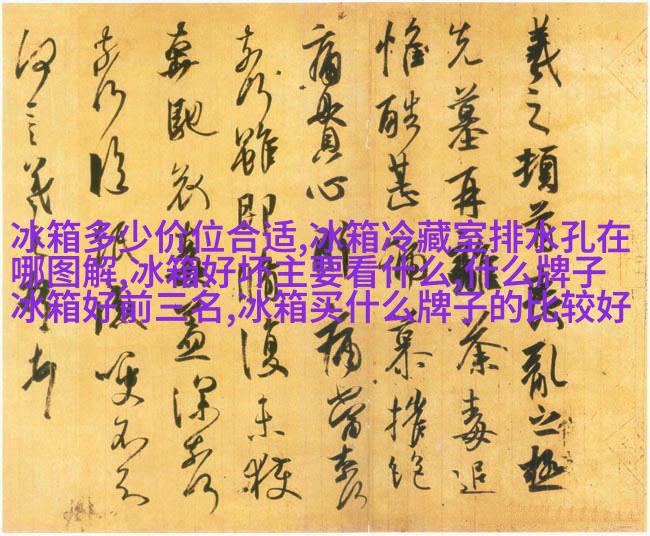 冰箱多少价位合适,冰箱冷藏室排水孔在
哪图解,冰箱好坏主要看什么,什么牌子
冰箱好前三名,冰箱买什么牌子的比较好
羲之頓首喪亂之極
先墓再離荼毒追
惟酷甚號慕摧絕
痛貫心肝痛當奈何
奈何雖即脩復未獲
奔馳哀毒益深奈何
奈何臨紙感哽不知
何言羲之頓首